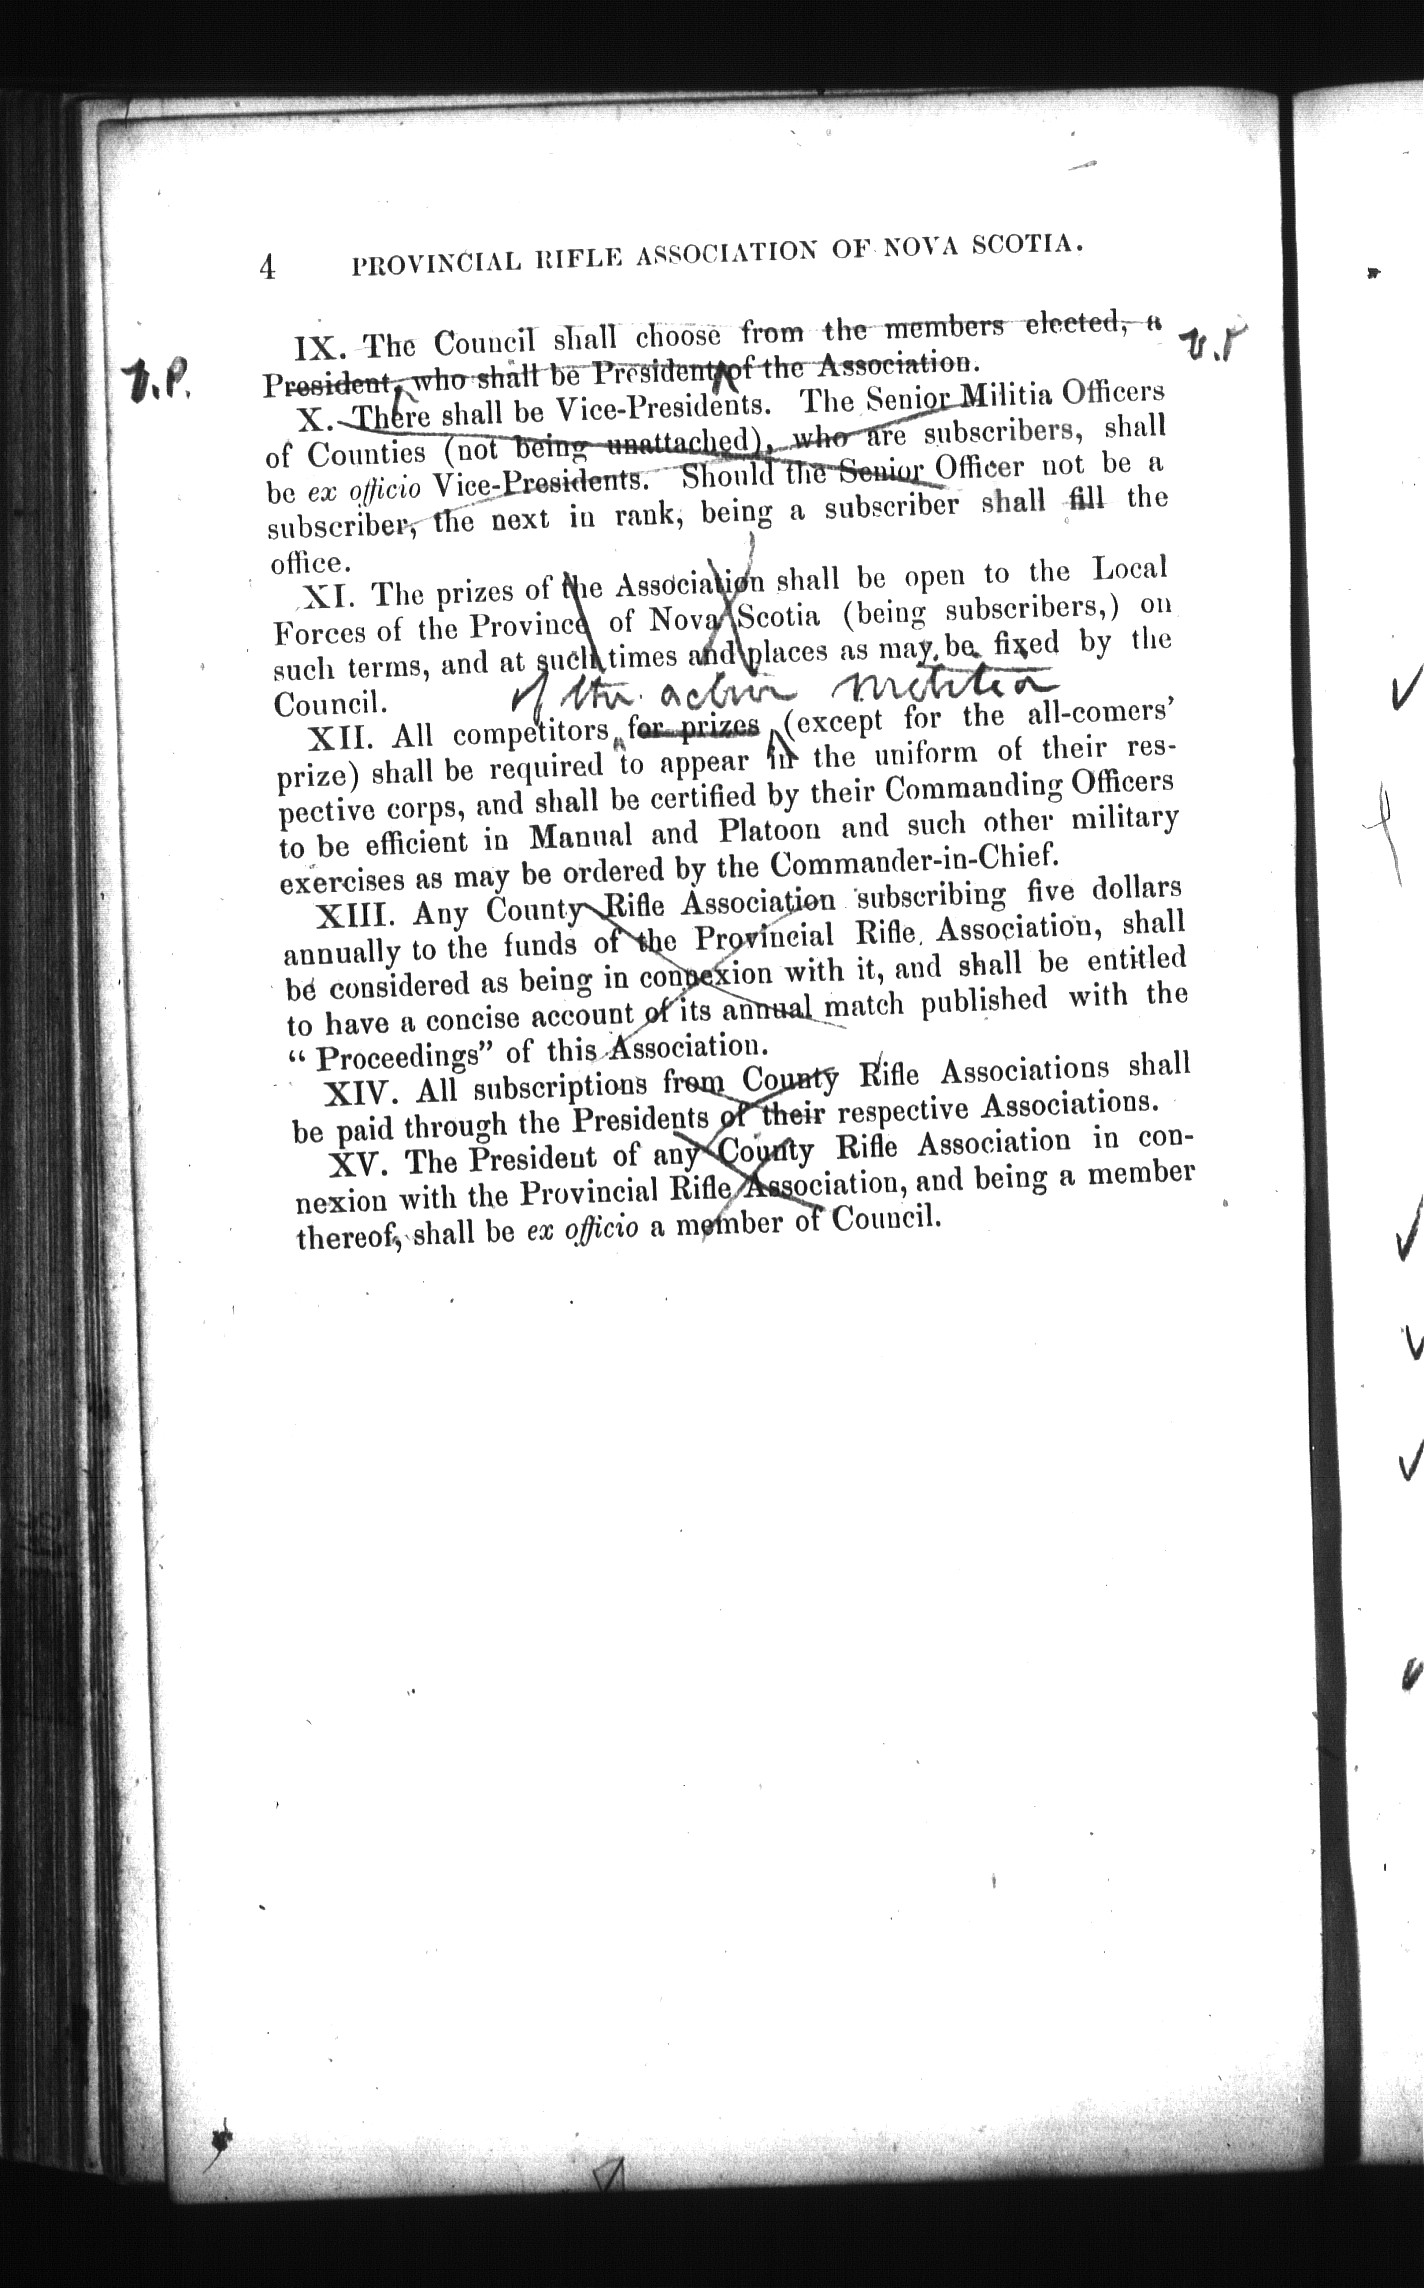 4 PROVINCIAL RIFLE ASSOCIATION OF NOVA SCOTIA.
IX. The Council shall choose from the members elected, a
V.P.
V.P
President, who shall be President of the Association.
X. There shall be Vice-Presidents. The Senior Militia Officers
of Counties (not being unattached), who are subscribers, shall
be ex officio Vice-Presidents. Should the Senior Officer not be a
subscriber, the next in rank, being a subscriber shall fill the
office.
XI. The prizes of the Association shall be open to the Local
Forces of the Province of Nova Scotia (being subscribers,) on
such terms, and at such times and places as may be fixed by the
Council.
of the active militia
XII. All competitors for prizes (except for the all-comers’
prize) shall be required to appear in the uniform of their res-
pective corps, and shall be certified by their Commanding Officers
to be efficient in Manual and Platoon and such other military
exercises as may be ordered by the Commander-in-Chief.
XIII. Any County Rifle Association subscribing five dollars
annually to the funds of the Provincial Rifle Association, shall
be considered as being in connexion with it, and shall be entitled
to have a concise account of its annual match published with the
“Proceedings” of this Association.
XIV. All subscriptions from County Rifle Associations shall
be paid through the Presidents of their respective Associations.
XV. The President of any County Rifle Association in con-
nexion with the Provincial Rifle Association, and being a member
thereof, shall be ex officio a member of Council.